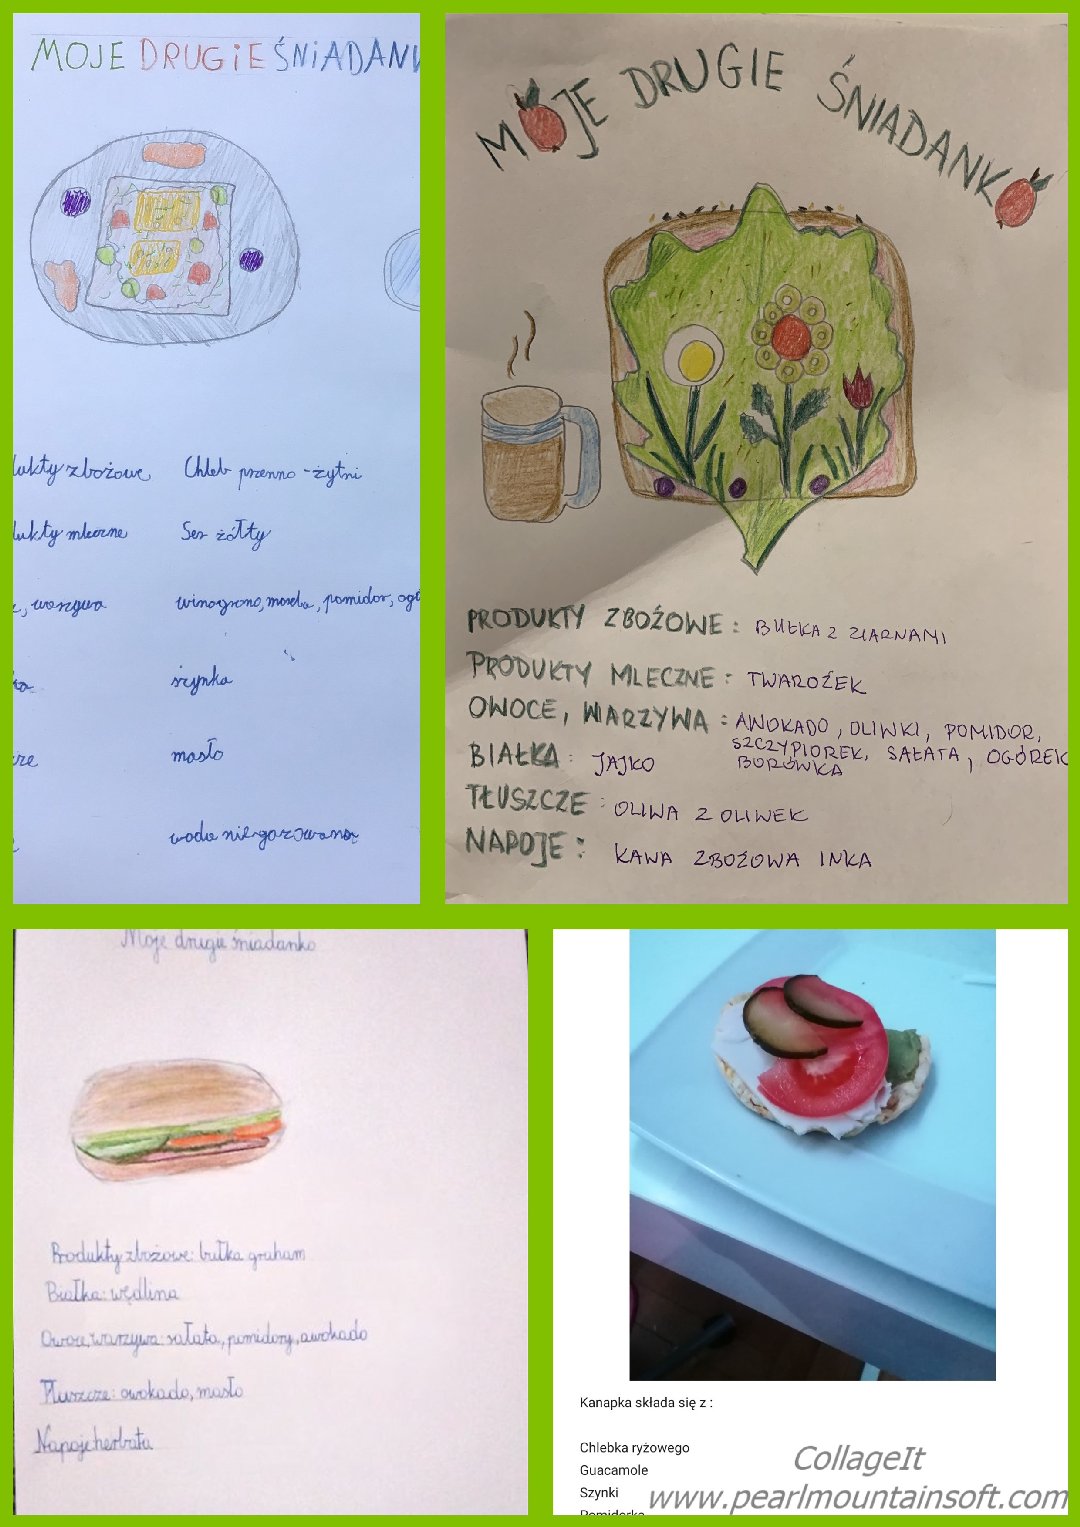 MOJE DRUGIE ŚNIADANK
dukty zbożowe Chleb pszenno-żytni
dukty mleczne Ser żółty
warzywa winogrono, morela, pomidor, ogó
szynka
masło
woda niegazowana
MOJE DRUGIE ŚNIADANKO
PRODUKTY ZBOŻOWE: BUŁKA Z ZIARNAMI
PRODUKTY MLECZNE: TWAROŻEK
OWOCE, WARZYWA: AWOKADO, OLIWKI, POMIDOR,
SZCZYPIOREK, SAŁATA, OGÓREK
BORÓWKA
BIAŁKA: JAJKO
TŁUSZCZE: OLIWA Z OLIWEK
NAPOJE: KAWA ZBOŻOWA INKA
Moje drugie śniadanko
Produkty zbożowe: bułka graham
Białka: wędlina
Owoce, warzywa: sałata, pomidory, awokado
Tłuszcze: awokado, masło
Napoje herbata
Kanapka składa się z :
Chlebka ryżowego
Guacamole
Szynki
Pomidorka
CollageIt
www.pearlmountainsoft.com